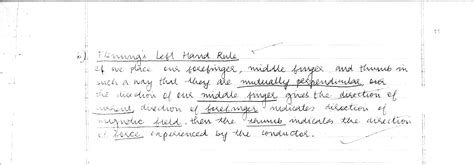 Flemming's Left Hand Rule
If we place our forefinger, middle finger and thumb in
such a way that they are mutually perpendicular
the direction of our middle finger gives the direction of
current, direction of forefinger indicates direction of
magnetic field, then the thumb indicates the direction
of force experienced by the conductor.